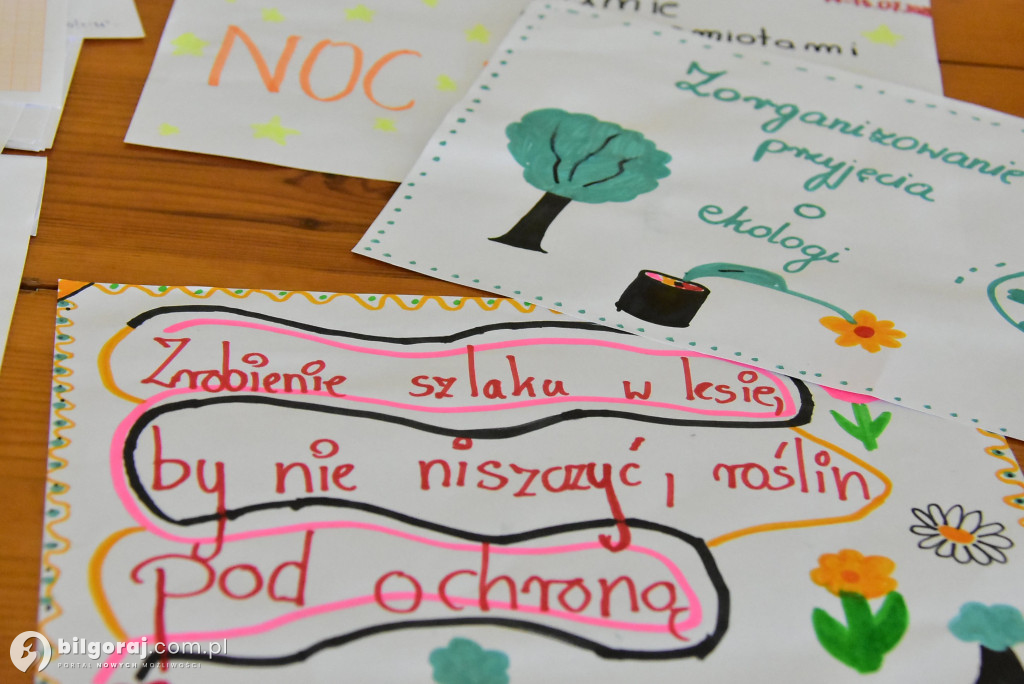 NOC
Zorganizowanie
przyjęcia
o
ekologi
Zrobienie szlaku w lesie,
by nie niszczyć, roślin
pod ochroną
bilgoraj.com.pl
PORTAL NOWYCH MOŻLIWOŚCI